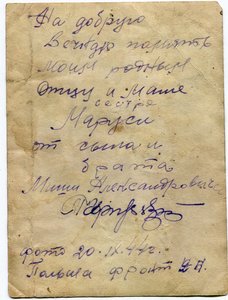 На добрую
Вечную память
Моим родным
Отцу и Маше
сестре
Марусе
от сына и
брата
Миши Александрович
фото 20.IX.44г.
Польша фронт